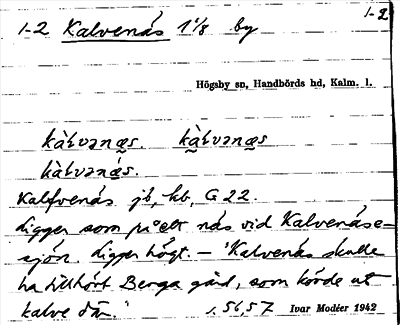 1-2
1-2 Kalvenäs 1 1/8 by
Högsby sn, Handbörds hd, Kalm. l.
kàɫvənæs. kàɫvənæs
kàɫvənás.
Kalfvenäs jb, kb, G 22.
ligger som på ett näs vid Kalvenäse-
sjön. ligger högt. – "Kalvenäs skulle
ha tillhört Berga gård, som körde ut
kalve där." s. 56, 57 Ivar Modéer 1942